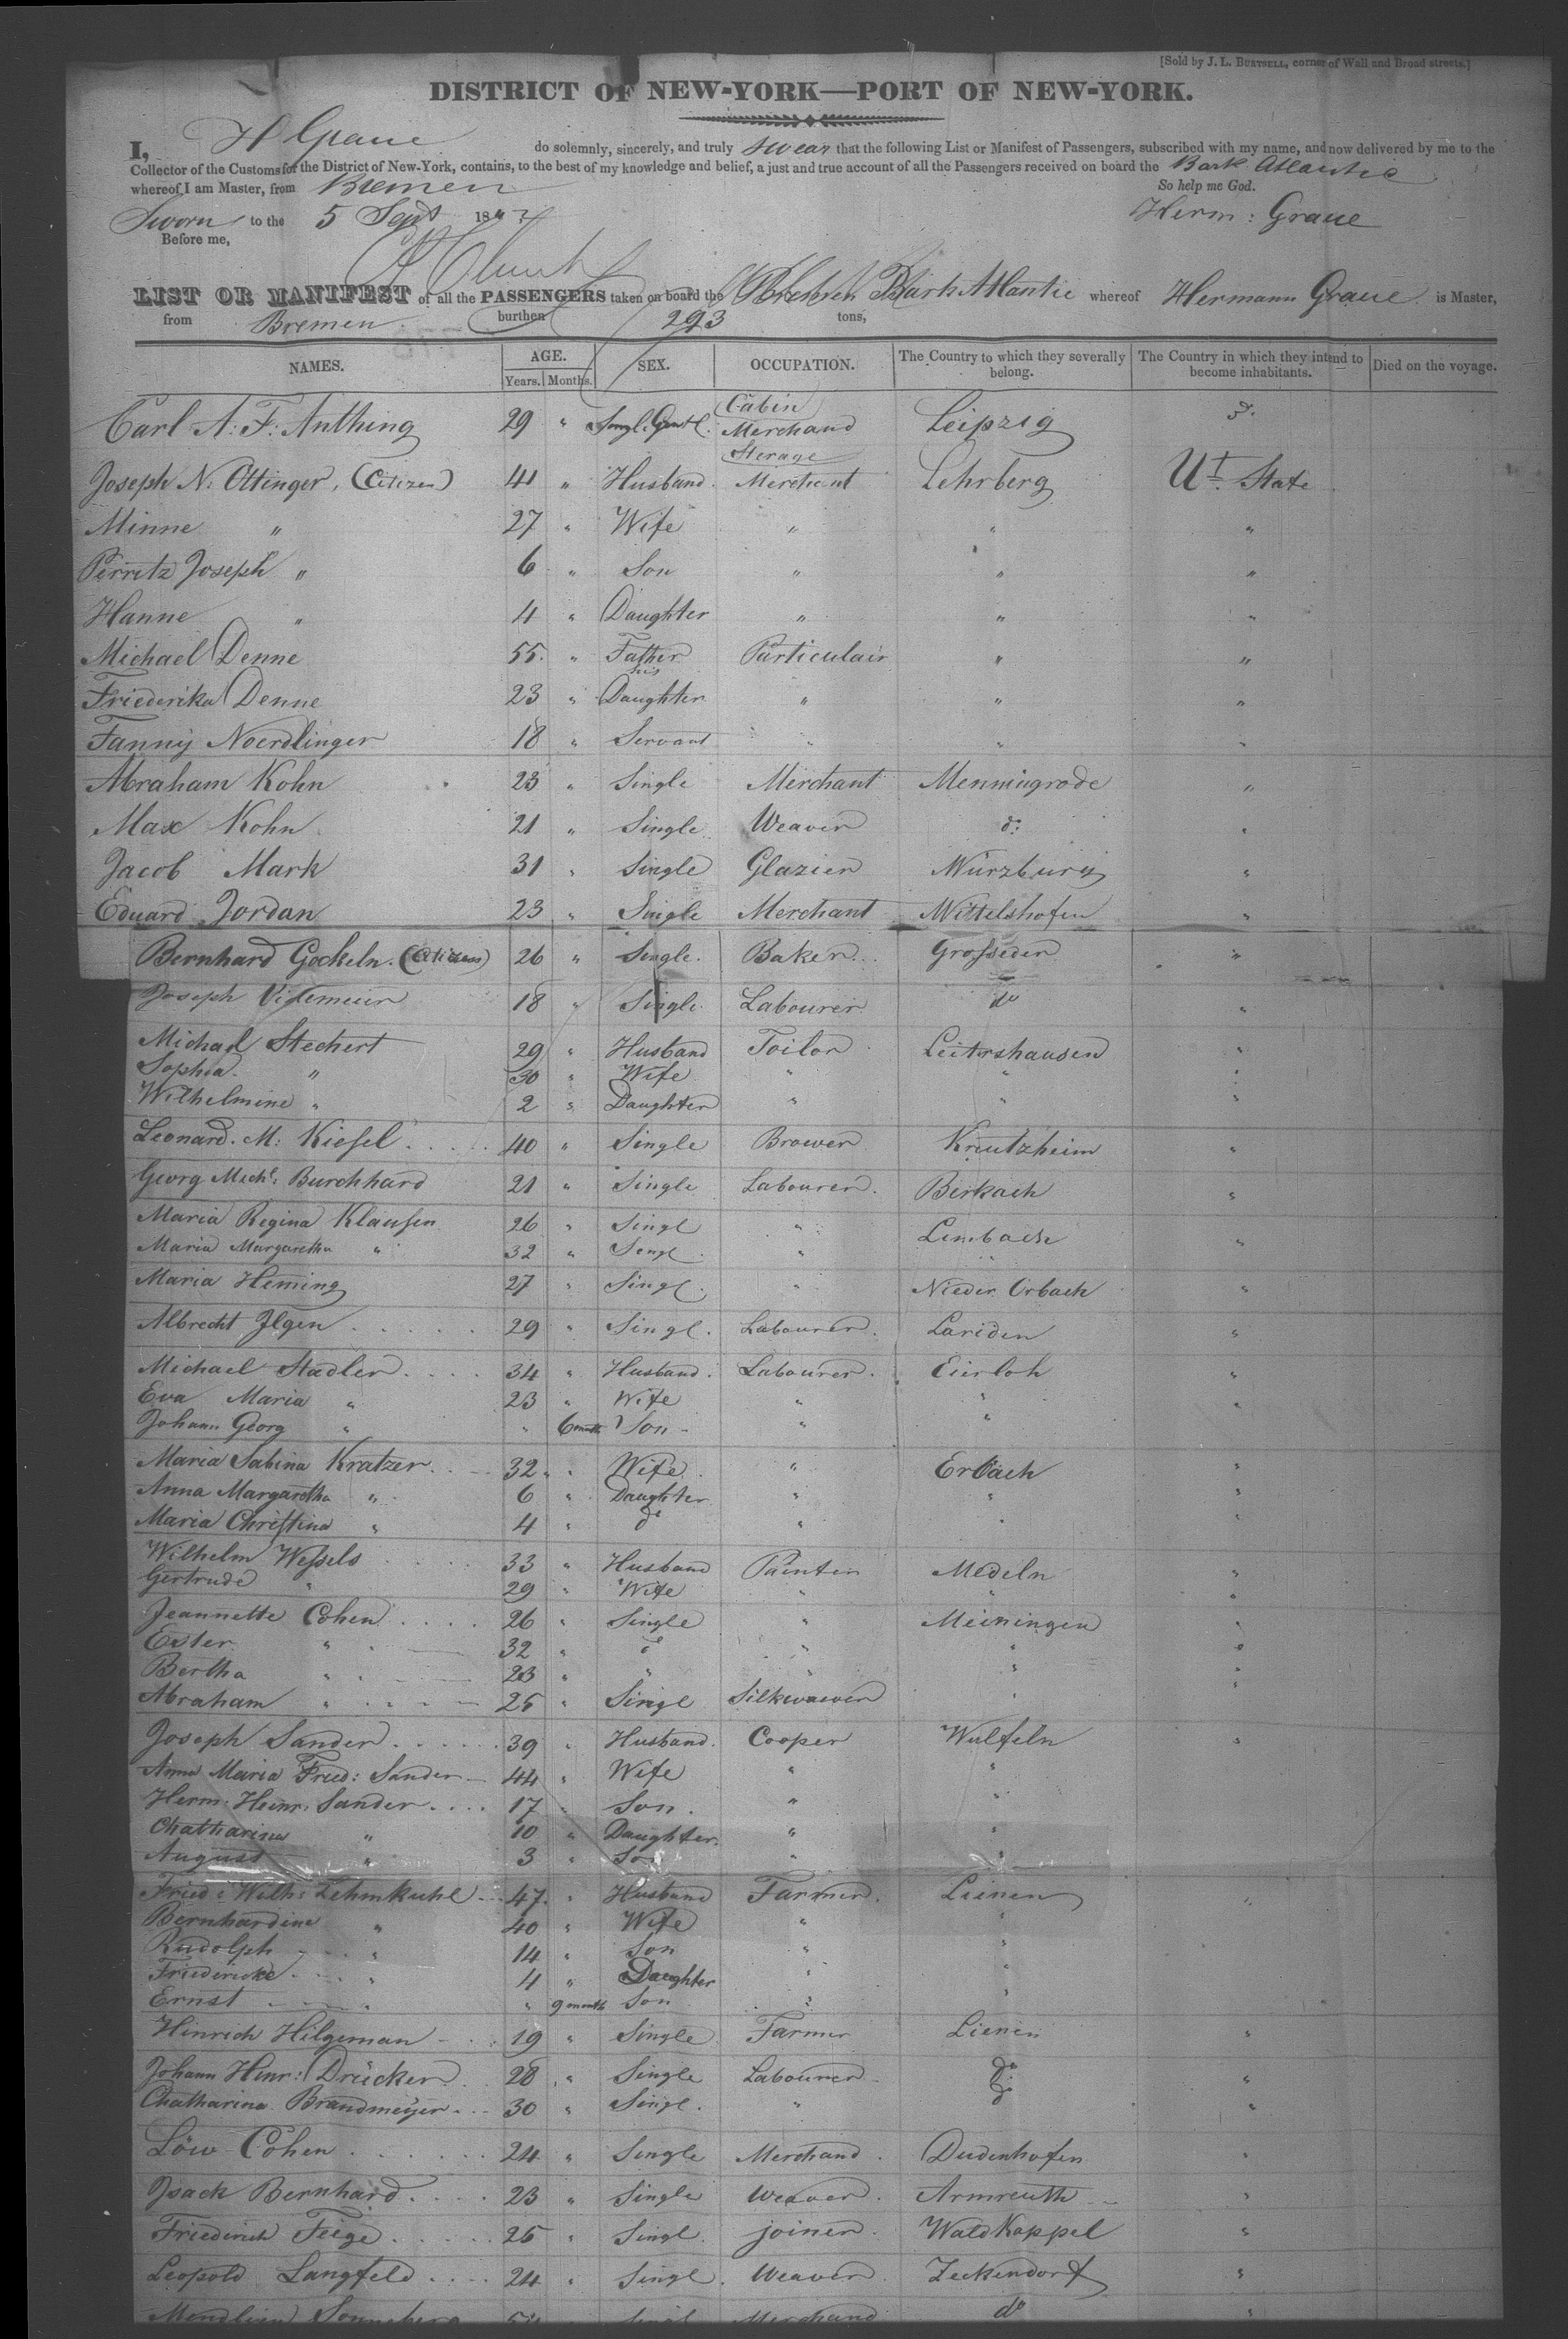 [Sold by J. L. BURTSELL, corner of Wall and Broad streets.]
DISTRICT OF NEW-YORK—PORT OF NEW-YORK.
I, H Graue do solemnly, sincerely, and truly swear that the following List or Manifest of Passengers, subscribed with my name, and now delivered by me to the
Collector of the Customs for the District of New-York, contains, to the best of my knowledge and belief, a just and true account of all the Passengers received on board the Bark Atlantic
whereof I am Master, from Bremen So help me God.
Sworn to the 5 Sept 184 Herm: Graue
Before me,
LIST OR MANIFEST of all the PASSENGERS taken on board the Bremen Bark Atlantic whereof Hermann Graue is Master,
from Bremen. burthen 293 tons,
NAMES. AGE. SEX. OCCUPATION. The Country to which they severally belong. The Country in which they intend to become inhabitants. Died on the voyage.
Years. Months.
Cabin
Carl A. F. Anthing 29 " Singl. Gentl. Merchand Leipzig do.
Sterage
Joseph N. Ottinger, (Citizen) 41 " Husband Merchant Lehrberg Ut. State
Minne " 27 " Wife " " "
Perritz Joseph " 6 " Son " " "
Hanne " 4 " Daughter " " "
Michael Denne 55. " Father Particulair " "
Friederika Denne 23 " his Daughter " " "
Fanny Noerdlinger 18 " Servant " " "
Abraham Kohn 23 " Single Merchant Menningrode "
Max Kohn 21 " Single Weaver do: "
Jacob Mark 31 " Single Glazier Würzburg "
Eduard Jordan 23 " Single Merchant Wittelshofen "
Bernhard Gockeln. (Citizen) 26 " Single. Baker Grosseder "
Joseph 18 " Single Labourer do "
Michael Stechert 29 " Husband Toilor Leitershausen "
Sophia " 30 " Wife " " "
Wilhelmine " 2 " Daughter " " "
Leonard. M: Kiesel 40 " Single Brower Kreutzheim "
Georg Michl: Burchhard 21 " Single Labourer. Birkach "
Maria Regina Klausen 26 " Singl " Limbach
Maria Margaretha " 32 " Singl " "
Maria Heming 27 " Singl. " Nieder Orbach "
Albrecht Ilgen 29 " Singl. Labourer. Lariden "
Michael Stadler 34 " Husband. Labourer. Eierloh "
Eva Maria " 23 " Wife " " "
Johann Georg " " 6 month Son " "
Maria Sabina Kratzer 32 " Wife " Erbach "
Anna Margaretha " 6 " Daughter " " "
Maria Christina " 4 " do " " "
Wilhelm Wessels 33 " Husband Painter Medeln "
Gertrude " 29 " Wife " " "
Jeannette Cohen 26 " Single " Meiningen "
Ester " 32 " do " " "
Bertha " 23 " " " " "
Abraham " 25 " Singl Silkweaver " "
Joseph Sander 39 " Husband. Cooper Wulfeln "
Anna Maria Fried: Sander 44 " Wife " "
Herm: Heinr: Sander 17 " Son. " "
Chatharina " 10 " Daughter. " "
August " 3 " Son " "
Fried: Wilh: Lehmkuhl 47. " Husband Farmer. Lienen "
Bernhardine " 40 " Wife " "
Rudolph " 14 " Son " "
Friedericke " 4 " Daughter " "
Ernst " " 9 month Son " "
Hinrich Hilgeman 19 " Single Farmer Lienen "
Johann Hinr: Drücker 28 " Single Labourer do "
Chatharina Brandmeyer 30 " Singl. " do "
Löw Cohen 24 " Single Merchand Dudenhofen "
Isack Bernhard 23 " Single Weaver Armreuth "
Friederich Feige 25 " Singl. joiner. WaldKappel "
Leopold Langfeld 24 " Singl. Weaver Zeckendorf "
Sonneberg Singl Merchand do "